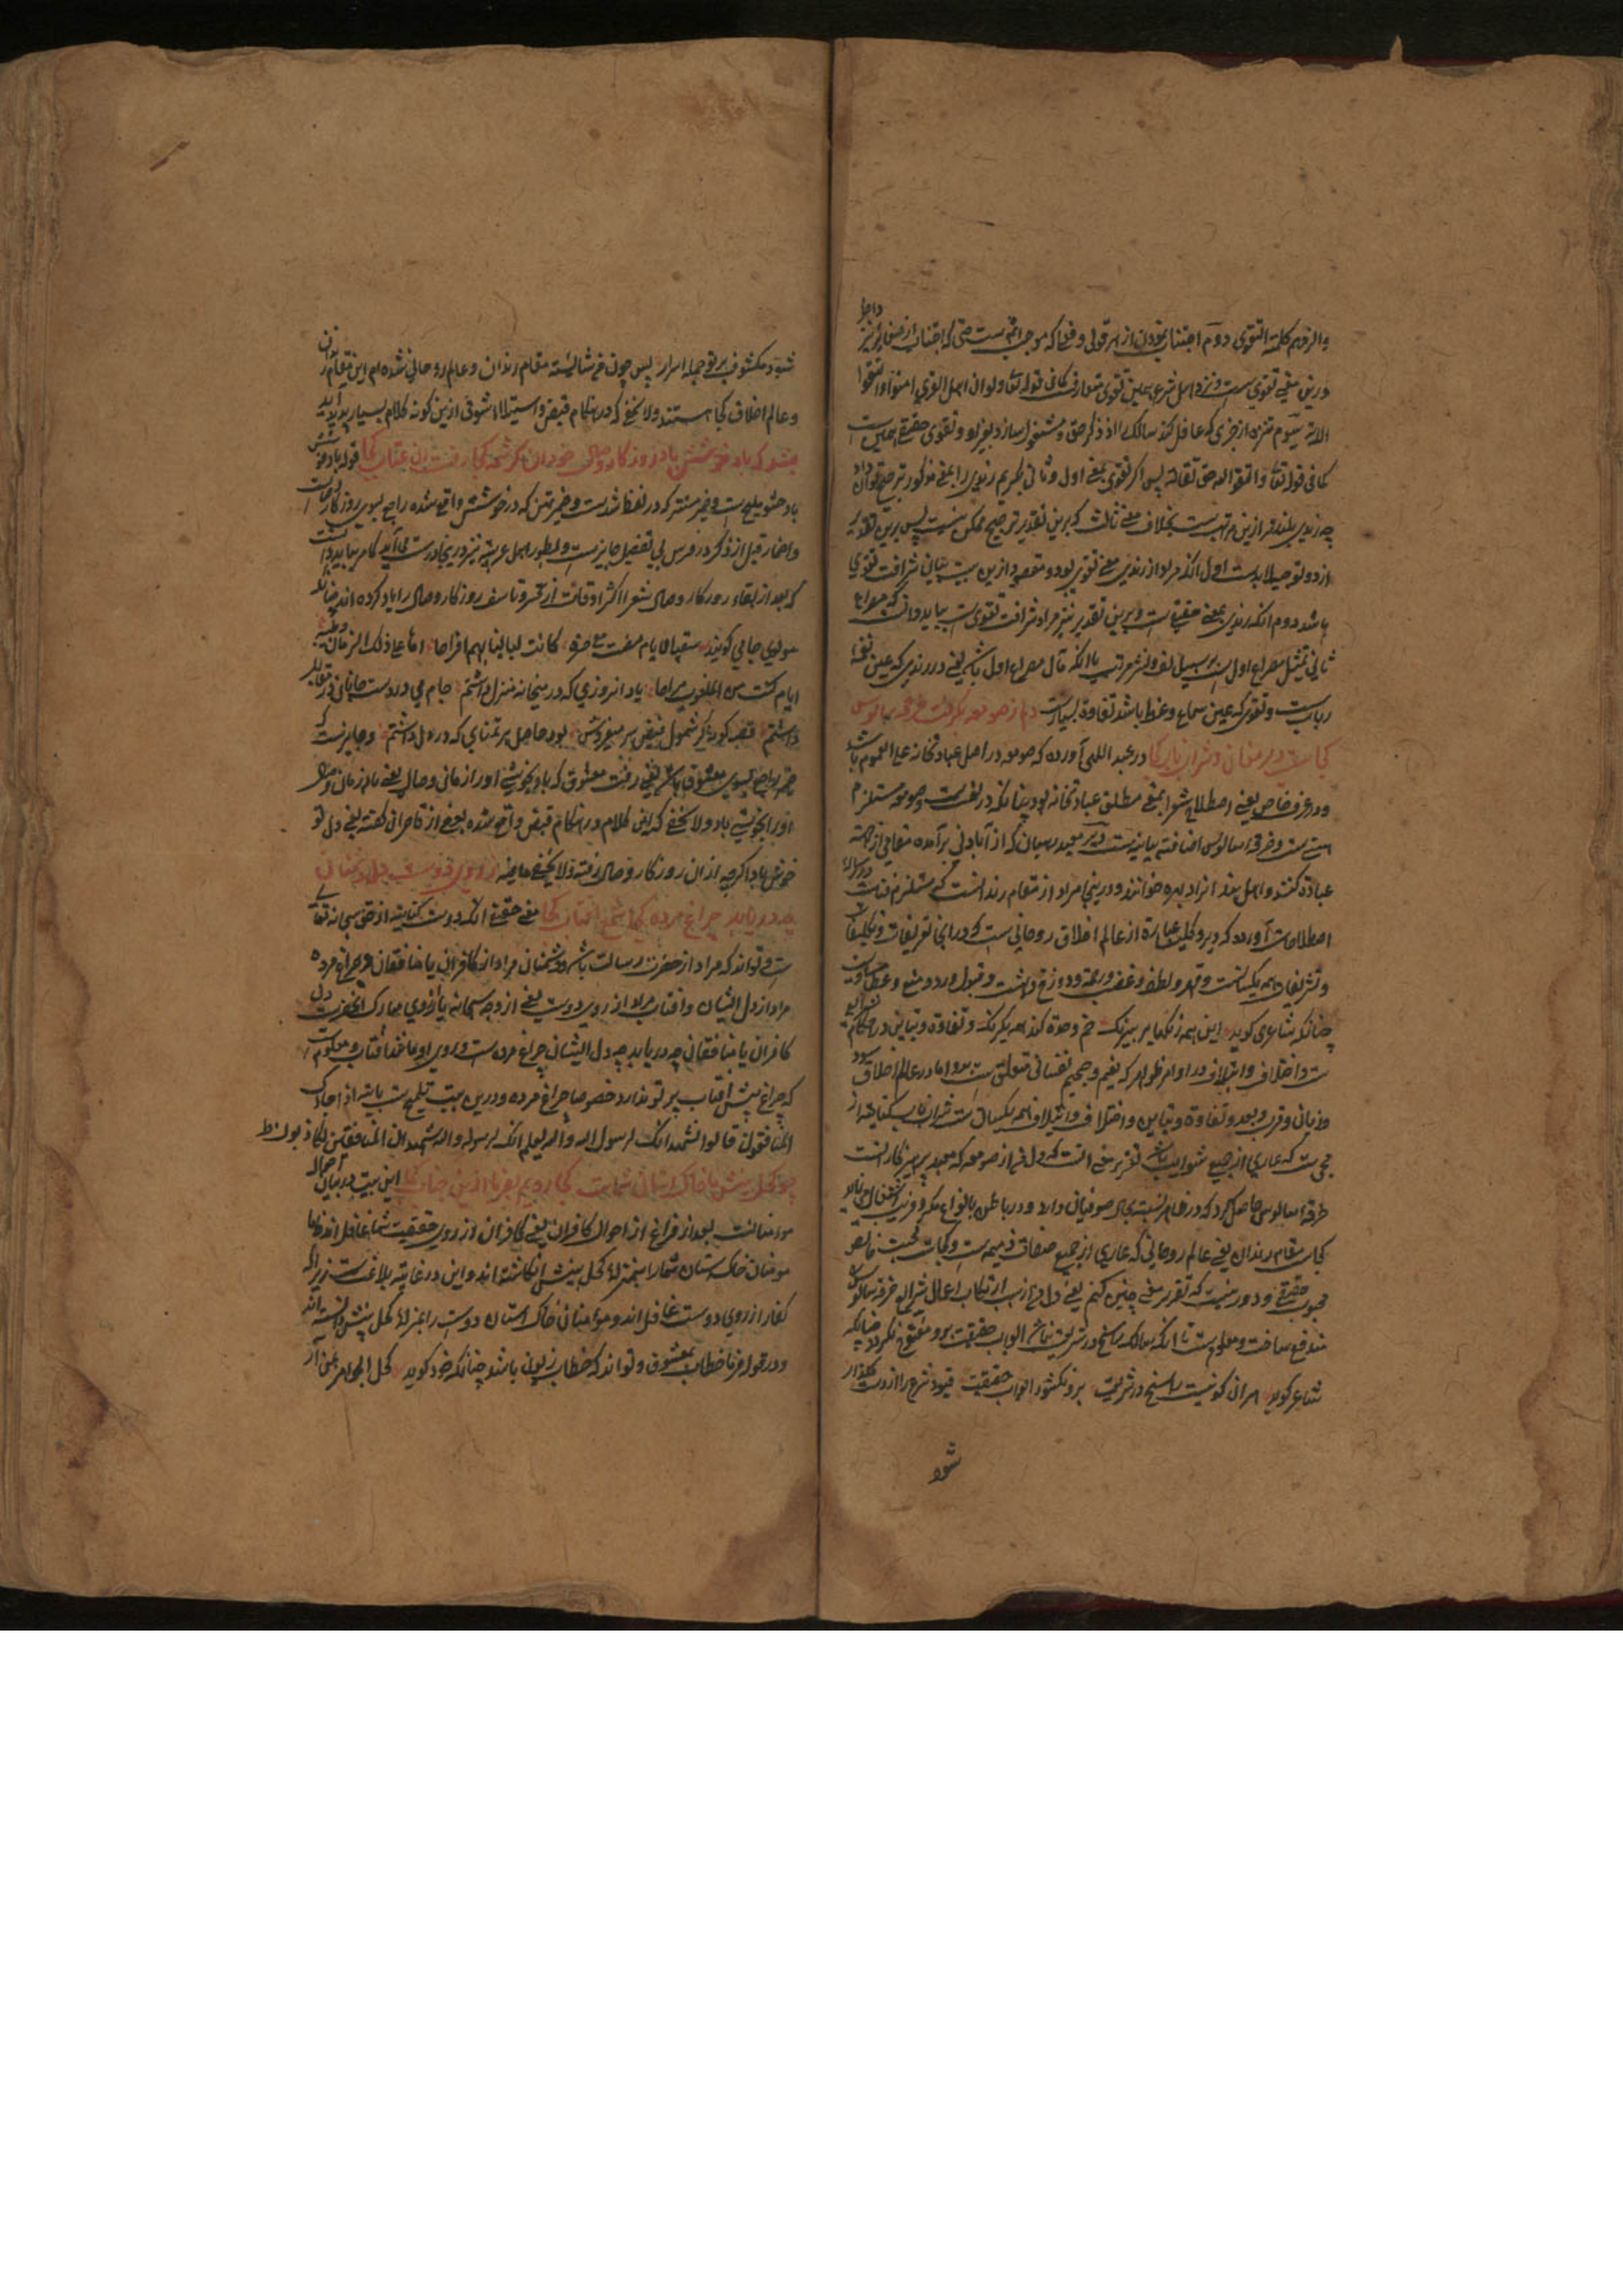 والزمهم کلمة التقوی دوم اجتناب نمودن از هر قولی و فعلی که موجب اثم ست حتی که اجتناب از صغایر نیز داخل
درین معنی تقوی ست و نزد اهل شرع همین تقوی متعارفست کما فی قوله تعا ولو ان اهل القری امنوا واتقوا
الایة سیوم تنزه از چیزی که غافل کند سالک را از ذکر حق و مشغول سازد بغیر او و تقوی حقیقے همین ست
کما فی قوله تعا واتقوا الله حق تقاته پس اگر تقوی بمعنے اول و ثانی بگیریم رندی را بمعنے مذکور ترجیح توان داد
چه رندی بلندتر ازین مرتبه است بخلاف معنے ثالث که برین تقدیر ترجیح ممکن نیست پس برین تقدیر
از دو توجیه لابد است اول آنکه مراد از رندی معنے تقوی بود و مقصود ازین بیت بیان شرافت تقوی
باشد دوم آنکه رندی بمعنے حقیقے ست و برین تقدیر نیز مراد شرافت تقوی ست بباید دانست که مصراع
ثانی تمثیل مصراع اول ست بر سبیل لف و نشر مرتب یا آنکه مآل مصراع اول باشد یعنے در رندی که عین نغمه
رباب ست و تقوی که عین سماع وعظ باشد تفاوت بسیارست دلم ز صومعه بگرفت و خرقه سالوس
کجاست دیر مغان و شراب ناب کجا در عبد اللهی آورده که صومعه در اصل عبادتخانه علی العموم باشد
و در عرف خاص یعنے اصطلاح شعرا بمعنے مطلق عبادتخانه بود چنانکه در لغت ست و صومعه مستلزم
هستے ست و خرقه سالوس اضافت بیانیه است دیر معبد رهبان که از آبادنی برآمده مقامی از جهت
عبادة کنند و اهل هند انرا دیهره خوانند و درینجا مراد از مقام رندانست که مستلزم فناست و در رساله
اصطلاحات آورده که دیر و کلیسا عبارة از عالم اخلاق روحانی ست که در انجا تعریفات و تکلیفات
و تشریفات همه یکسانست و قهر و لطف و غضب و رحمة و دوزخ و بهشت و قبول و رد و منع و عطا مساویست
چنانکه شاعری کوید این همه رنگهای پر نیرنگ خم وحدة کند همه یکرنگ و تفاوة و تباین در احکام
ست و اختلاف و ایتلاف در اوامر ظواهر که نعیم و جحیم نفسانی متعلق ست بدو اما در عالم اخلاق
و زیانی و قرب و بعد و تفاوة و تباین و اختلاف و ایتلاف همه یکسان ست شراب ناب کنایة از
محبی ست که عاری از جمیع شوایب باشد تقریر معنے انست که دل من از صومعه که معبد پرهیزکار انست
خرقه سالوس حاصل کرد که در ظاهر نسبت بحال صوفیان دارد و در باطن بانواع مکر و فریب اشتغال می نماید
کجاست مقام رندان یعنے عالم روحانی که عاری از جمیع صفات ذمیمه ست و کجاست محبت خالص
محبوب حقیقے و دور نیست که تقریر معنے چنین کنم یعنے دل من از سبب ارتکاب اعمال شرایع خرقه سالوس
مندفع ساخت و معلوم ست تا انکه سالک راسخ در شریعت نباشد ابواب حقیقت برو مفتوح نکردد چنانکه
شاعر کوید هر ان کو نیست راسخ در شریعت برو نکشود ابواب حقیقت قیود شرع را از دست مگذار
شود
شود مکشوف بر تو جمله اسرار پس چون من شائسته مقام رندان و عالم روحانی شده ام این مقام رندان
و عالم اخلاق کجا هستند ولا یخفے که در هنکام قبض و استیلاء شوق ازین کونه کلام بسیار پدید آید
بشد که یاد خوشش باد روز کار وصال خود آن کرشمه کجا رفت آن عتاب کجا قوله یاد خوشش
باد حشو ملیح ست و ضمیر مستتر که در لفظ شد ست و ضمیر شین که در خوشش واقع شده راجع بسوی روزکار وصال ست
و اضمار قبل از ذکر در فرس بی تفضیل جایز ست و بطور اهل عربیه نیز درینجا درست می آید کما مر بباید دانست
که بعد از بقاء روز کار وصال شعرا اکثر اوقات از تحسر و تاسف روزکار وصال را یاد کرده اند چنانکه
مولوی جامی کویند سقیا لایام مضت مع جیرة کانت لیالینا بهم افراحا اها علی ذلک الزمان و طیبه
ایام کنت من اللغوب مراحا یاد انروزی که در میخانه منزل داشتم جام می در دست و جانان در مقابل
داشتم قصه کوته کز شمول فیض پیر میفروش بود حاصل هر تمنای که در دل داشتم و جایزست که
ضمیر راجع بسوی معشوق باشد یعنے رفت معشوق که یاد بخوشے او را از مانی وصال یعنے یاد زمان وصال
او را بخوشے باد و لا یخفے که این کلام در هنکام قبض واقع شده بعضے از قاصران کفته یعنے دل تو
خوش باد اکرچه از ان روزکار وصال رفته و لا یخفے ما فیه ز روی دوست دل دشمنان
چه دریابد چراغ مرده کجا شمع آفتاب کجا معنے حقیقے انکه دوست کنایت از حق سبحانه تعالی
ست و تواند که مراد از حضرت رسالت باشد و دشمنان مراد از کافران یا منافقان و چراغ مرده
مراد از دل ایشان و آفتاب مراد از روی دوست یعنے از وجه سبحانه یا از روی مبارک انحضرت دل
کافران یا منافقان چه دریابد چه دل ایشان چراغ مرده ست و روی او مانند آفتاب و معلوم ست
که چراغ پیش آفتاب پرتو ندارد خصوصا چراغ مرده و درین بیت تلمیح ست بآیة اذا جاءک
المنافقون قالوا نشهد انک لرسول الله والله یعلم انک لرسوله والله یشهد ان المنافقین لکاذبون ط
چو کحل بینش ما خاک آستان شماست کجا رویم بفرما ازین جناب کجا این بیت در بیان احوال
مومنانست بعد از فراغ از احوال کافران یعنے کافران از روی حقیقیت شما غافل اند و ما
مومنان خاک آستان شما را بمنزلة کحل بینش انکاشته اند و این در غایة بلاغت ست زیرا که
کفار از روی دوست غافل اند و مومنان خاک استان دوست را بمنزلة کحل بینش دانسته اند
و در قوله بفرما خطاب بمعشوق و تواند که خطاب برسول باشد چنانکه خود کوید کحل الجواهر بمن ار